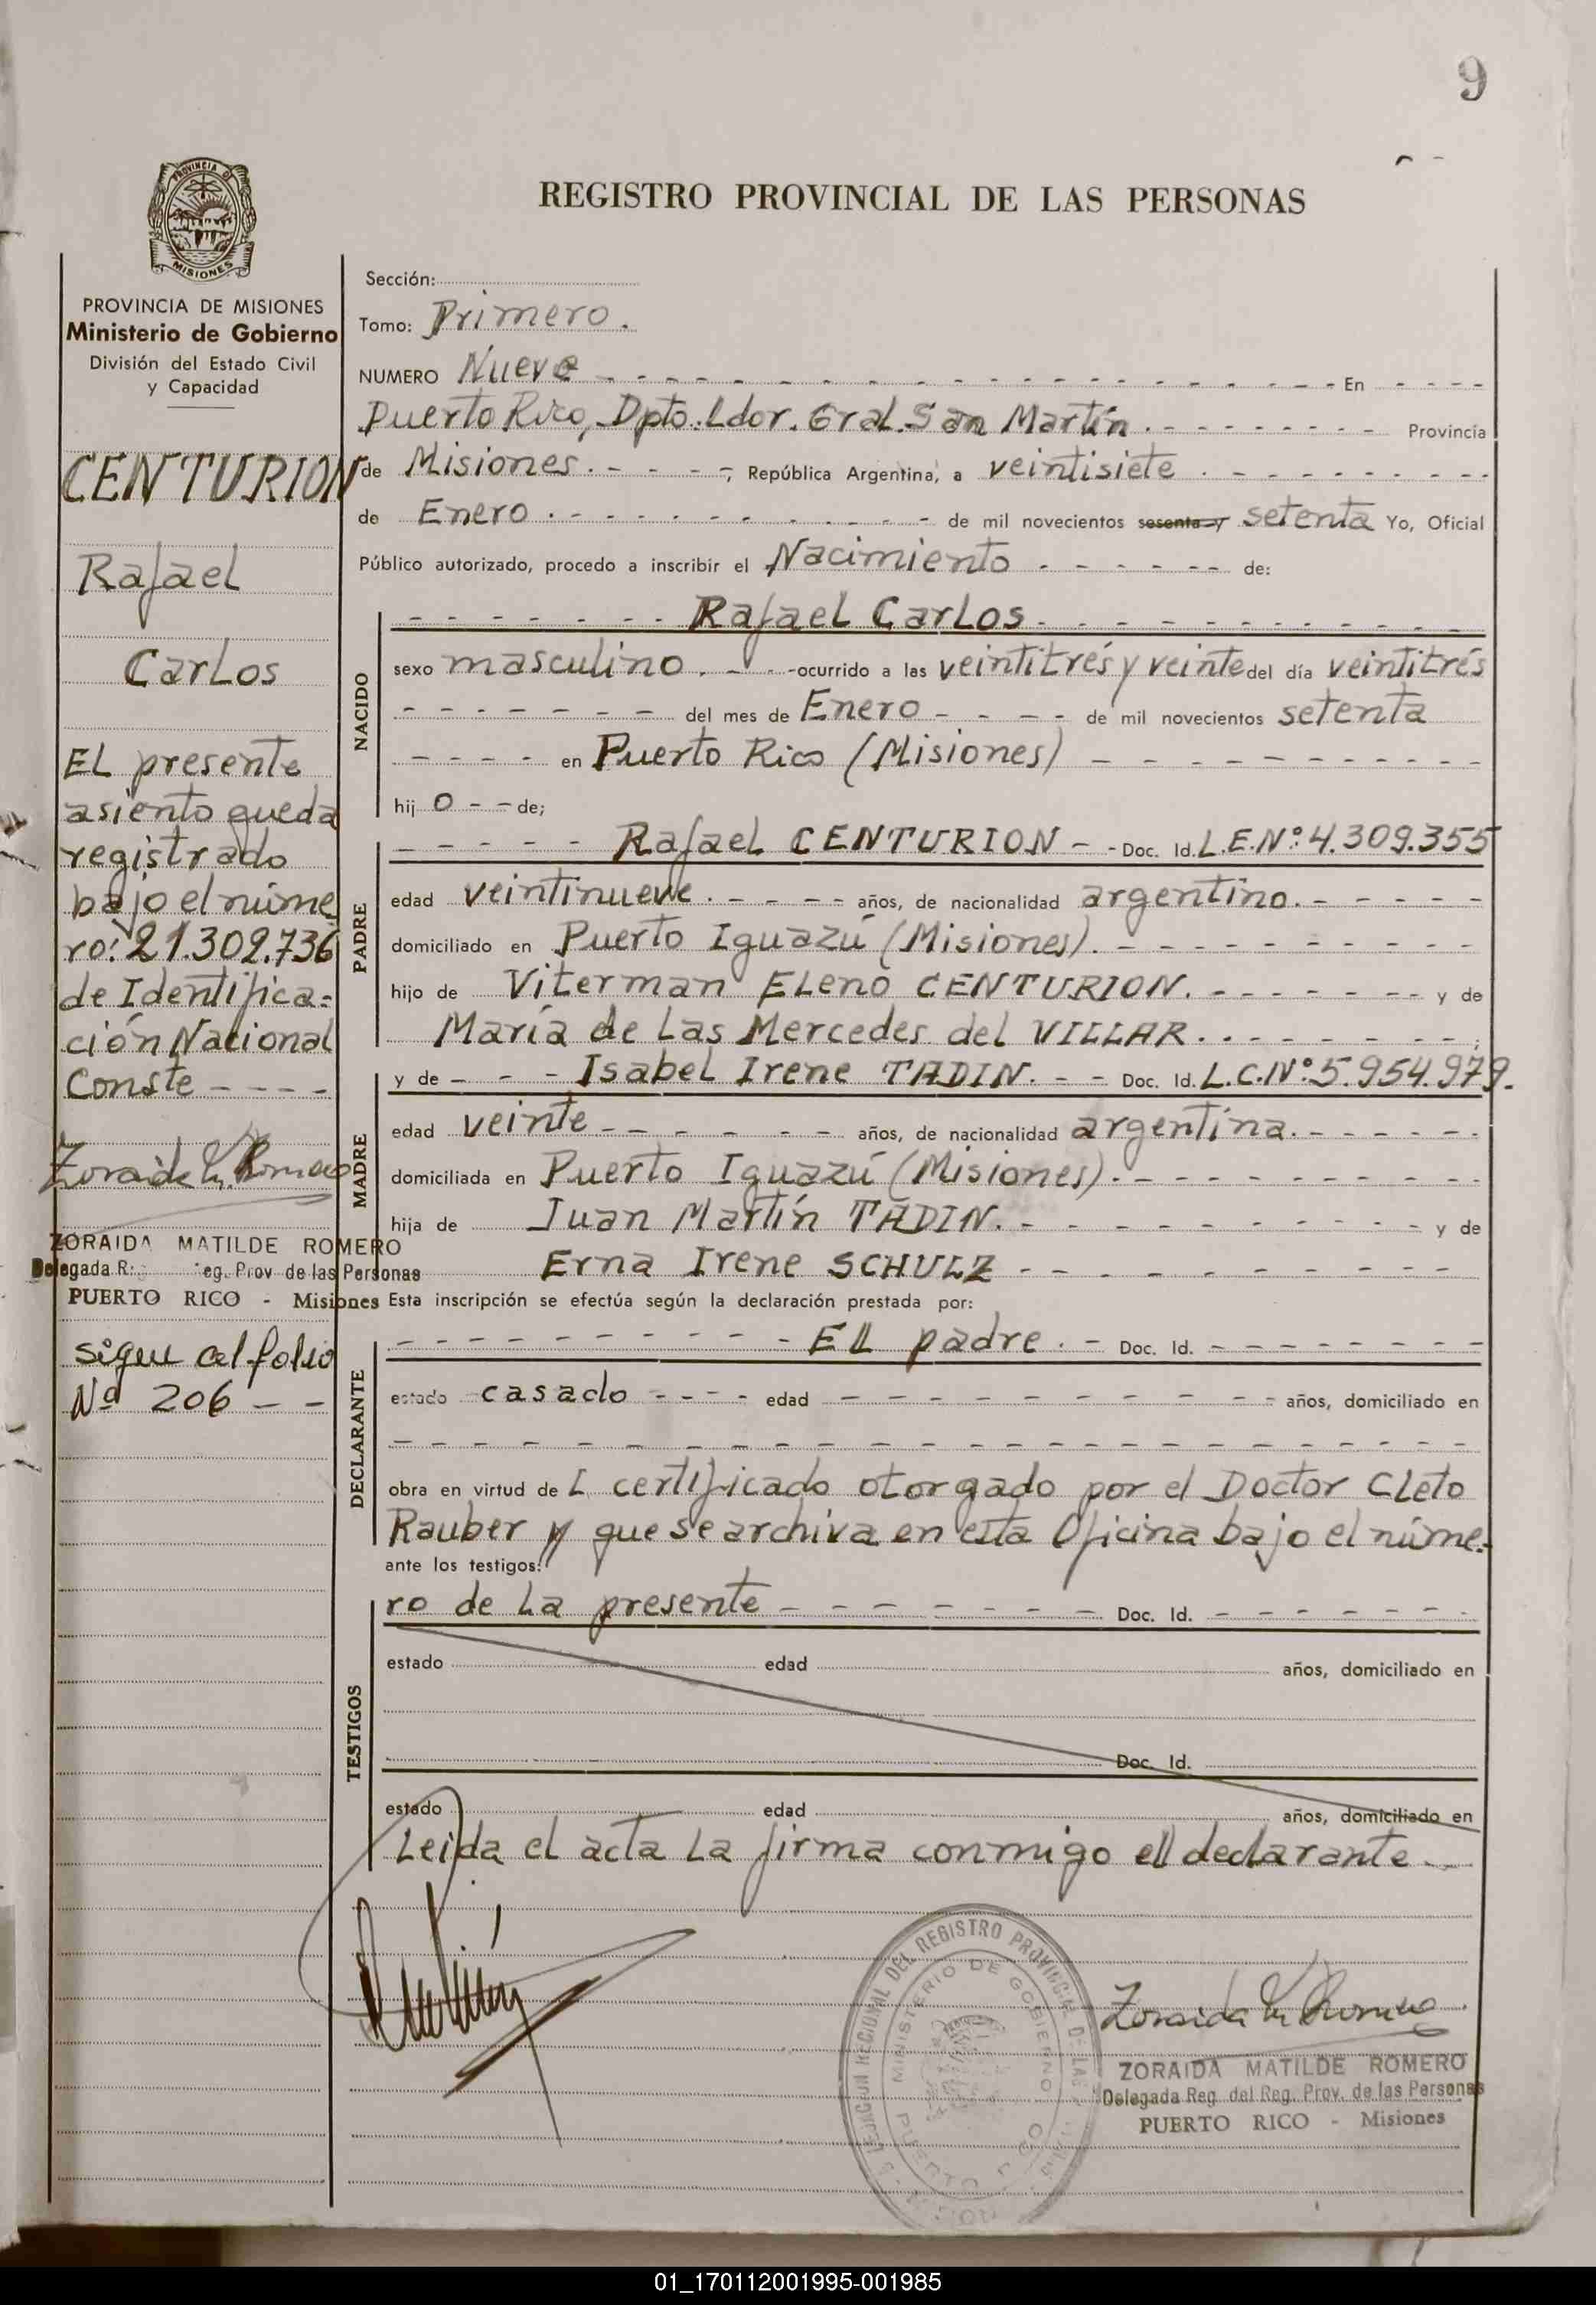 9
REGISTRO PROVINCIAL DE LAS PERSONAS
PROVINCIA DE
MISIONES
PROVINCIA DE MISIONES
Ministerio de Gobierno
División del Estado Civil
y Capacidad
CENTURION
Rafael
Carlos
EL presente
asiento queda
registrado
bajo el núme
ro: 21.302.736
de Identifica=
ción Nacional
Conste - - - -
Zoraida M. Romero
ZORAIDA MATILDE ROMERO
Delegada R. Reg. Prov de las Personas
PUERTO RICO - Misiones
sigue al folio
Nº 206 - -
Sección:
Tomo: Primero.
NUMERO Nueve - - - En - - - -
Puerto Rico, Dpto. Ldor. Gral. San Martín. - - - Provincia
de Misiones. - - - -, República Argentina, a veintisiete. - - -
de Enero. - - - de mil novecientos sesenta y setenta Yo, Oficial
Público autorizado, procedo a inscribir el Nacimiento - - - de:
NACIDO
- - - Rafael Carlos. - - -
sexo masculino. - - - ocurrido a las veintitrés y veinte del día veintitrés
- - - del mes de Enero - - - de mil novecientos setenta
- - - - en Puerto Rico (Misiones) - - -
hij o - - de;
PADRE
- - - Rafael CENTURION - - Doc. Id. L.E.Nº: 4.309.355
edad veintinueve. - - - - años, de nacionalidad argentino. - - -
domiciliado en Puerto Iguazú (Misiones). - - -
hijo de Viterman ELeno CENTURION. - - - y de
María de Las Mercedes del VILLAR. - - -;
MADRE
y de - - - Isabel Irene TADIN. - - Doc. Id. L.C.Nº: 5.954.979.
edad veinte - - - años, de nacionalidad argentina. - - -
domiciliada en Puerto Iguazú (Misiones). - - -
hija de Juan Martín TADIN. - - - y de
Erna Irene SCHULZ - - -
Esta inscripción se efectúa según la declaración prestada por:
DECLARANTE
- - - EL padre. - Doc. Id. - - -
estado casado - - - - edad - - - años, domiciliado en
- - -
obra en virtud de L certificado otorgado por el Doctor Cleto
Rauber y que se archiva en esta Oficina bajo el núme-
ante los testigos:
ro de La presente - - - Doc. Id. - - -
TESTIGOS
estado edad años, domiciliado en
Doc. Id.
estado edad años, domiciliado en
Leída el acta La firma conmigo el declarante. -
DELEGACION REGIONAL DEL REGISTRO PROVINCIAL DE LAS
MINISTERIO DE GOBIERNO
Zoraida M. Romero
ZORAIDA MATILDE ROMERO
Delegada Reg. del Reg. Prov. de las Personas
PUERTO RICO - Misiones
01_170112001995-001985